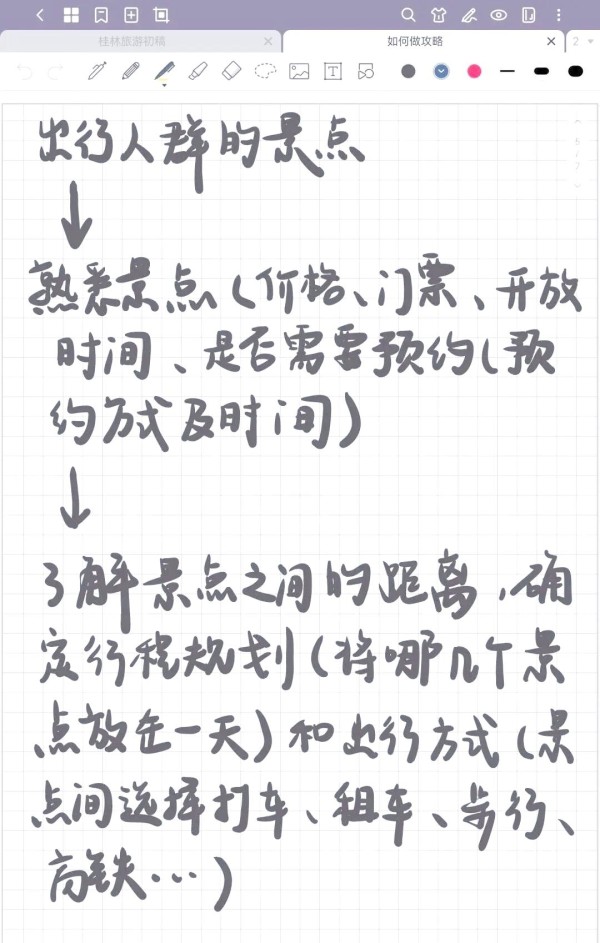 桂林旅游初稿
如何做攻略
2
出行人群的景点
熟悉景点(价格、门票、开放
时间、是否需要预约(预
约方式及时间)
了解景点之间的距离,确
定行程规划(将哪几个景
点放在一天)和出行方式(景
点间选择打车、租车、步行、
高铁…)